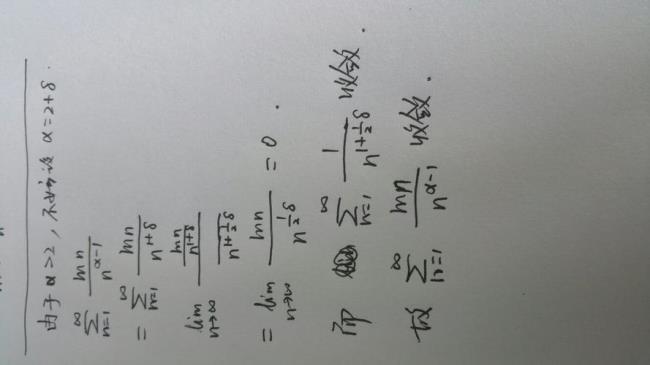 由于 α>2, 不妨设 α=2+δ.
∑_{n=1}^{∞} \frac{ln n}{n^{α-1}}
= ∑_{n=1}^{∞} \frac{ln n}{n^{1+δ}}
lim_{n→∞} \frac{\frac{ln n}{n^{1+δ}}}{\frac{1}{n^{1+\frac{1}{2}δ}}}
= lim_{n→∞} \frac{ln n}{n^{\frac{1}{2}δ}} = 0.
而 ∑_{n=1}^{∞} \frac{1}{n^{1+\frac{1}{2}δ}} 收敛.
故 ∑_{n=1}^{∞} \frac{ln n}{n^{α-1}} 收敛.